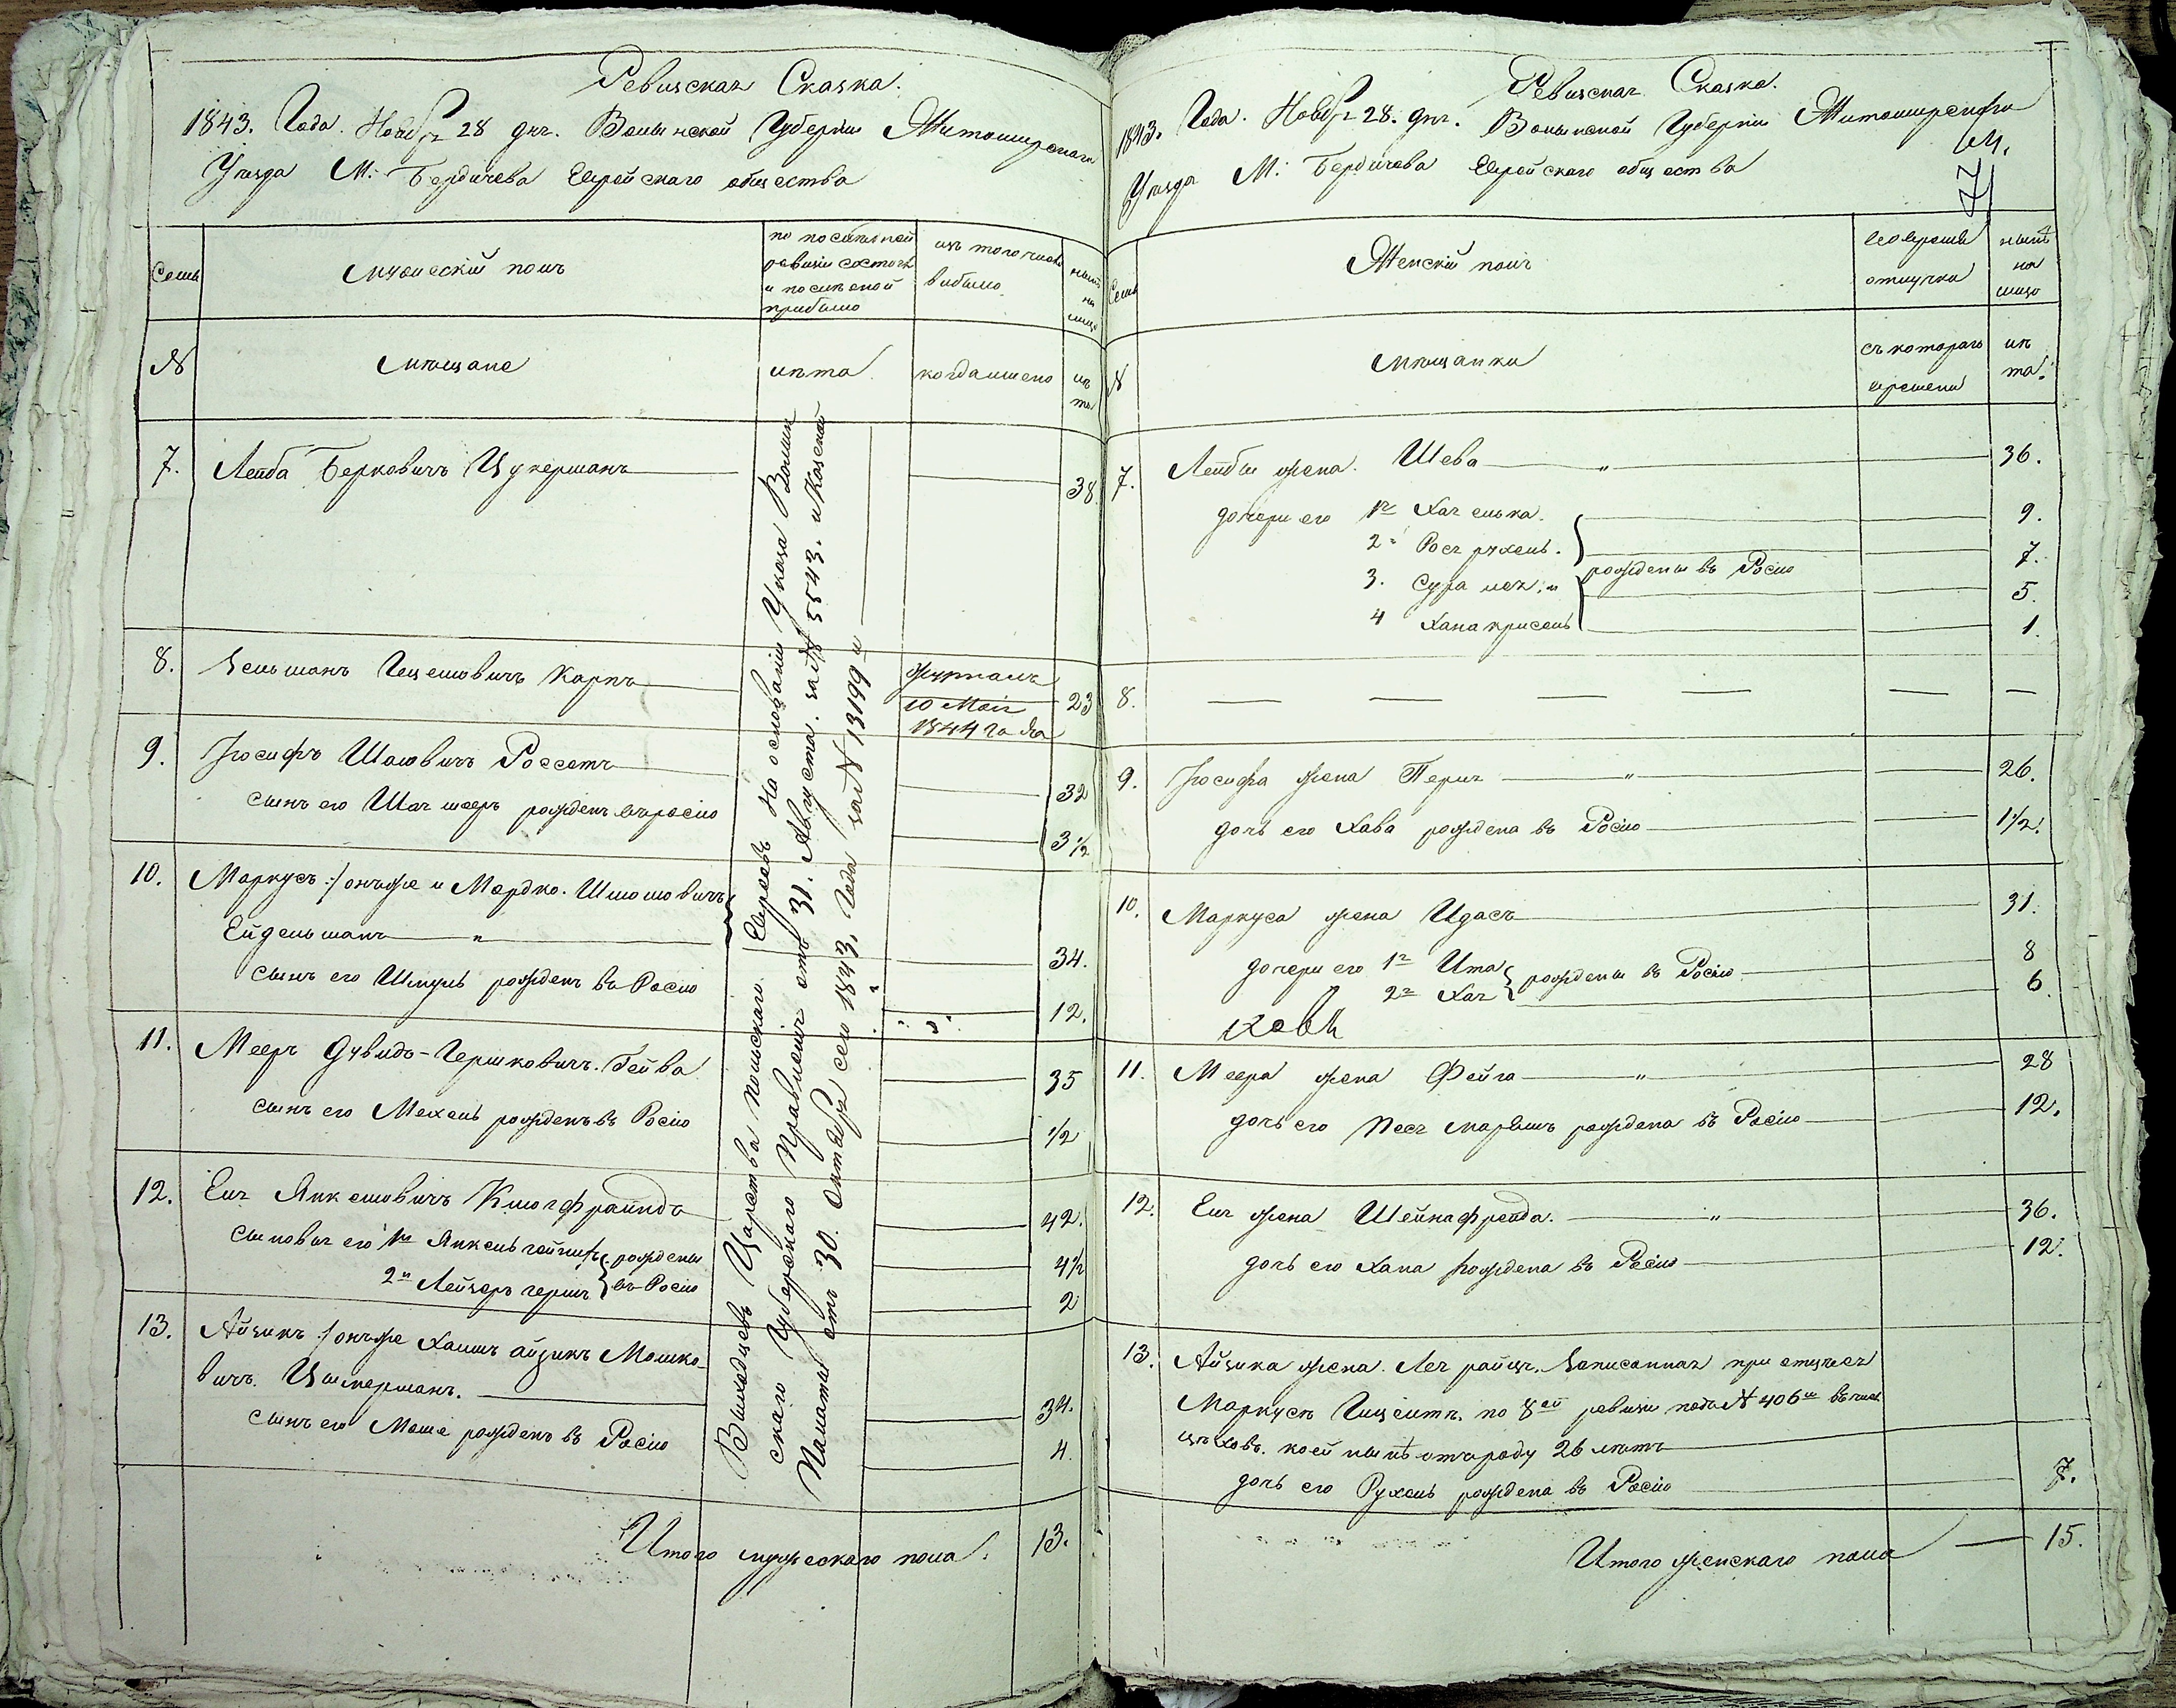 Ревизская Сказка.
1843. Года. Ноября 28 дня. Волынской Губернии Житомирскаго
Уезда М: Бердичева Еврейскаго общества
Семьи
мужескій полъ
по последней
ревизіи состояло
и после оной
прибыло
изъ того числа
выбыло
ныне
на
лицо
№
мещане
лета
когда именно
ле
та
7. Лейба Берковичъ Цукерманъ 38
8. Зельманъ Гецеловичъ Карпъ 23
журналъ
10 Маія
1844 года
9. Іосифъ Шаювичъ Россетъ 32
сынъ его рожденъ въ росіи 3½
10. Маркусъ :/ онъ же и Мордко. Шлиомовичъ
Ейдельманъ " 34.
сынъ его Шмуль рожденъ въ Росіи 12.
11. Мееръ Дувидъ-Гершковичъ. Гейва 35
сынъ его Мехель рожденъ въ Росіи ½
12. Еля Янкеловичъ 42.
сыновья его 1й Янкель рождены 4½
2й Лейзеръ гершъ въ Росіи 2
13. Айзикъ :/ онъ же Хаимъ айзикъ Мошко-
вичъ. Цимерманъ. 34.
сынъ его Моше рожденъ въ Росіи 4.
Выходцевъ Царства польскаго Евреевъ на основаніи Указа Волын
скаго Губернскаго Правленія отъ 31. Августа. за № 5543. и Казеной
Палаты отъ 30. Октября сего 1843. Года за № 13199 м
Итого мужескаго пола. 13.
Ревизская Сказка.
1843. Года. Ноября 28. дня. Волынской Губерніи Житомирскаго
Уезда М: Бердичева Еврейскаго общества
77
Семьи
Женскій полъ
во временной
отлучке
ныне
на
лицо
№
мещанки
съ котораго
времени
ле
та.
7. Лейбы жена. Шева " 36.
дочери его 1я Хая елька. 9.
2я Рося рухель. 7.
3. Сура лея рождены въ Росіи 5.
4 Хана крисель 1.
8. — — — — — —
9. Іосифа жена Перля " 26.
дочь его Хава рождена въ Росіи 1½.
10. Маркуса жена Идася 31.
дочери его 1я Ита рождены въ Росіи 8
2я Хая 6.
11. Меера жена Фейга " 28
дочь его Песя рождена въ Росіи 12.
12. Еля жена Шейнафрейда. " 36.
дочь его Хана рождена въ Росіи 12.
13. Айзика жена. Лея райця. Записанная при отце ея
Маркуса по 8ей ревизіи подъ № 406м въ числе
цеховъ. коей ныне отъ роду 26 летъ
дочь его Рухель рождена въ Росіи 7.
Итого женскаго пола — 15.